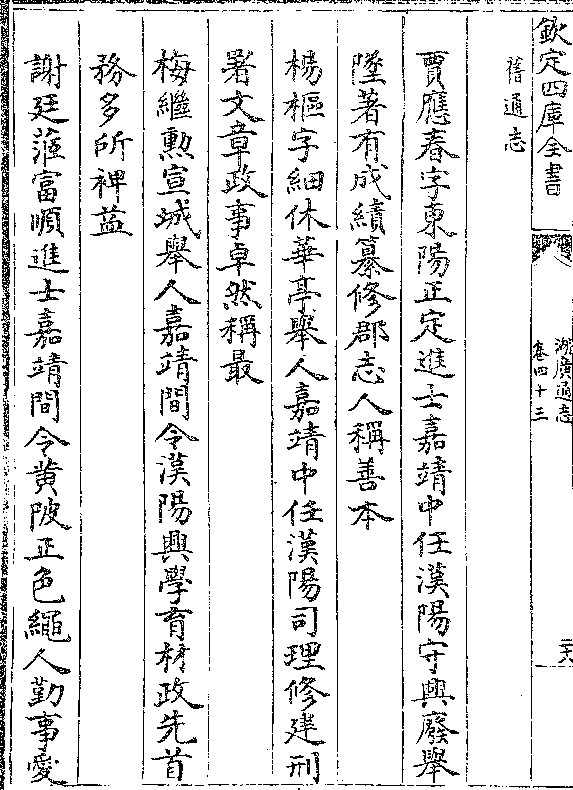 欽定四庫全書
湖廣通志
卷四十三
二六
舊通志
賈應春字東陽正定進士嘉靖中任漢陽守興廢舉
墜著有成績纂修郡志人稱善本
楊樞字細休華亭舉人嘉靖中任漢陽司理修建刑
署文章政事卓然稱最
梅繼勲宣城舉人嘉靖間令漢陽興學育材政先首
務多所裨益
謝廷菃富順進士嘉靖間令黄陂正色繩人勤事愛